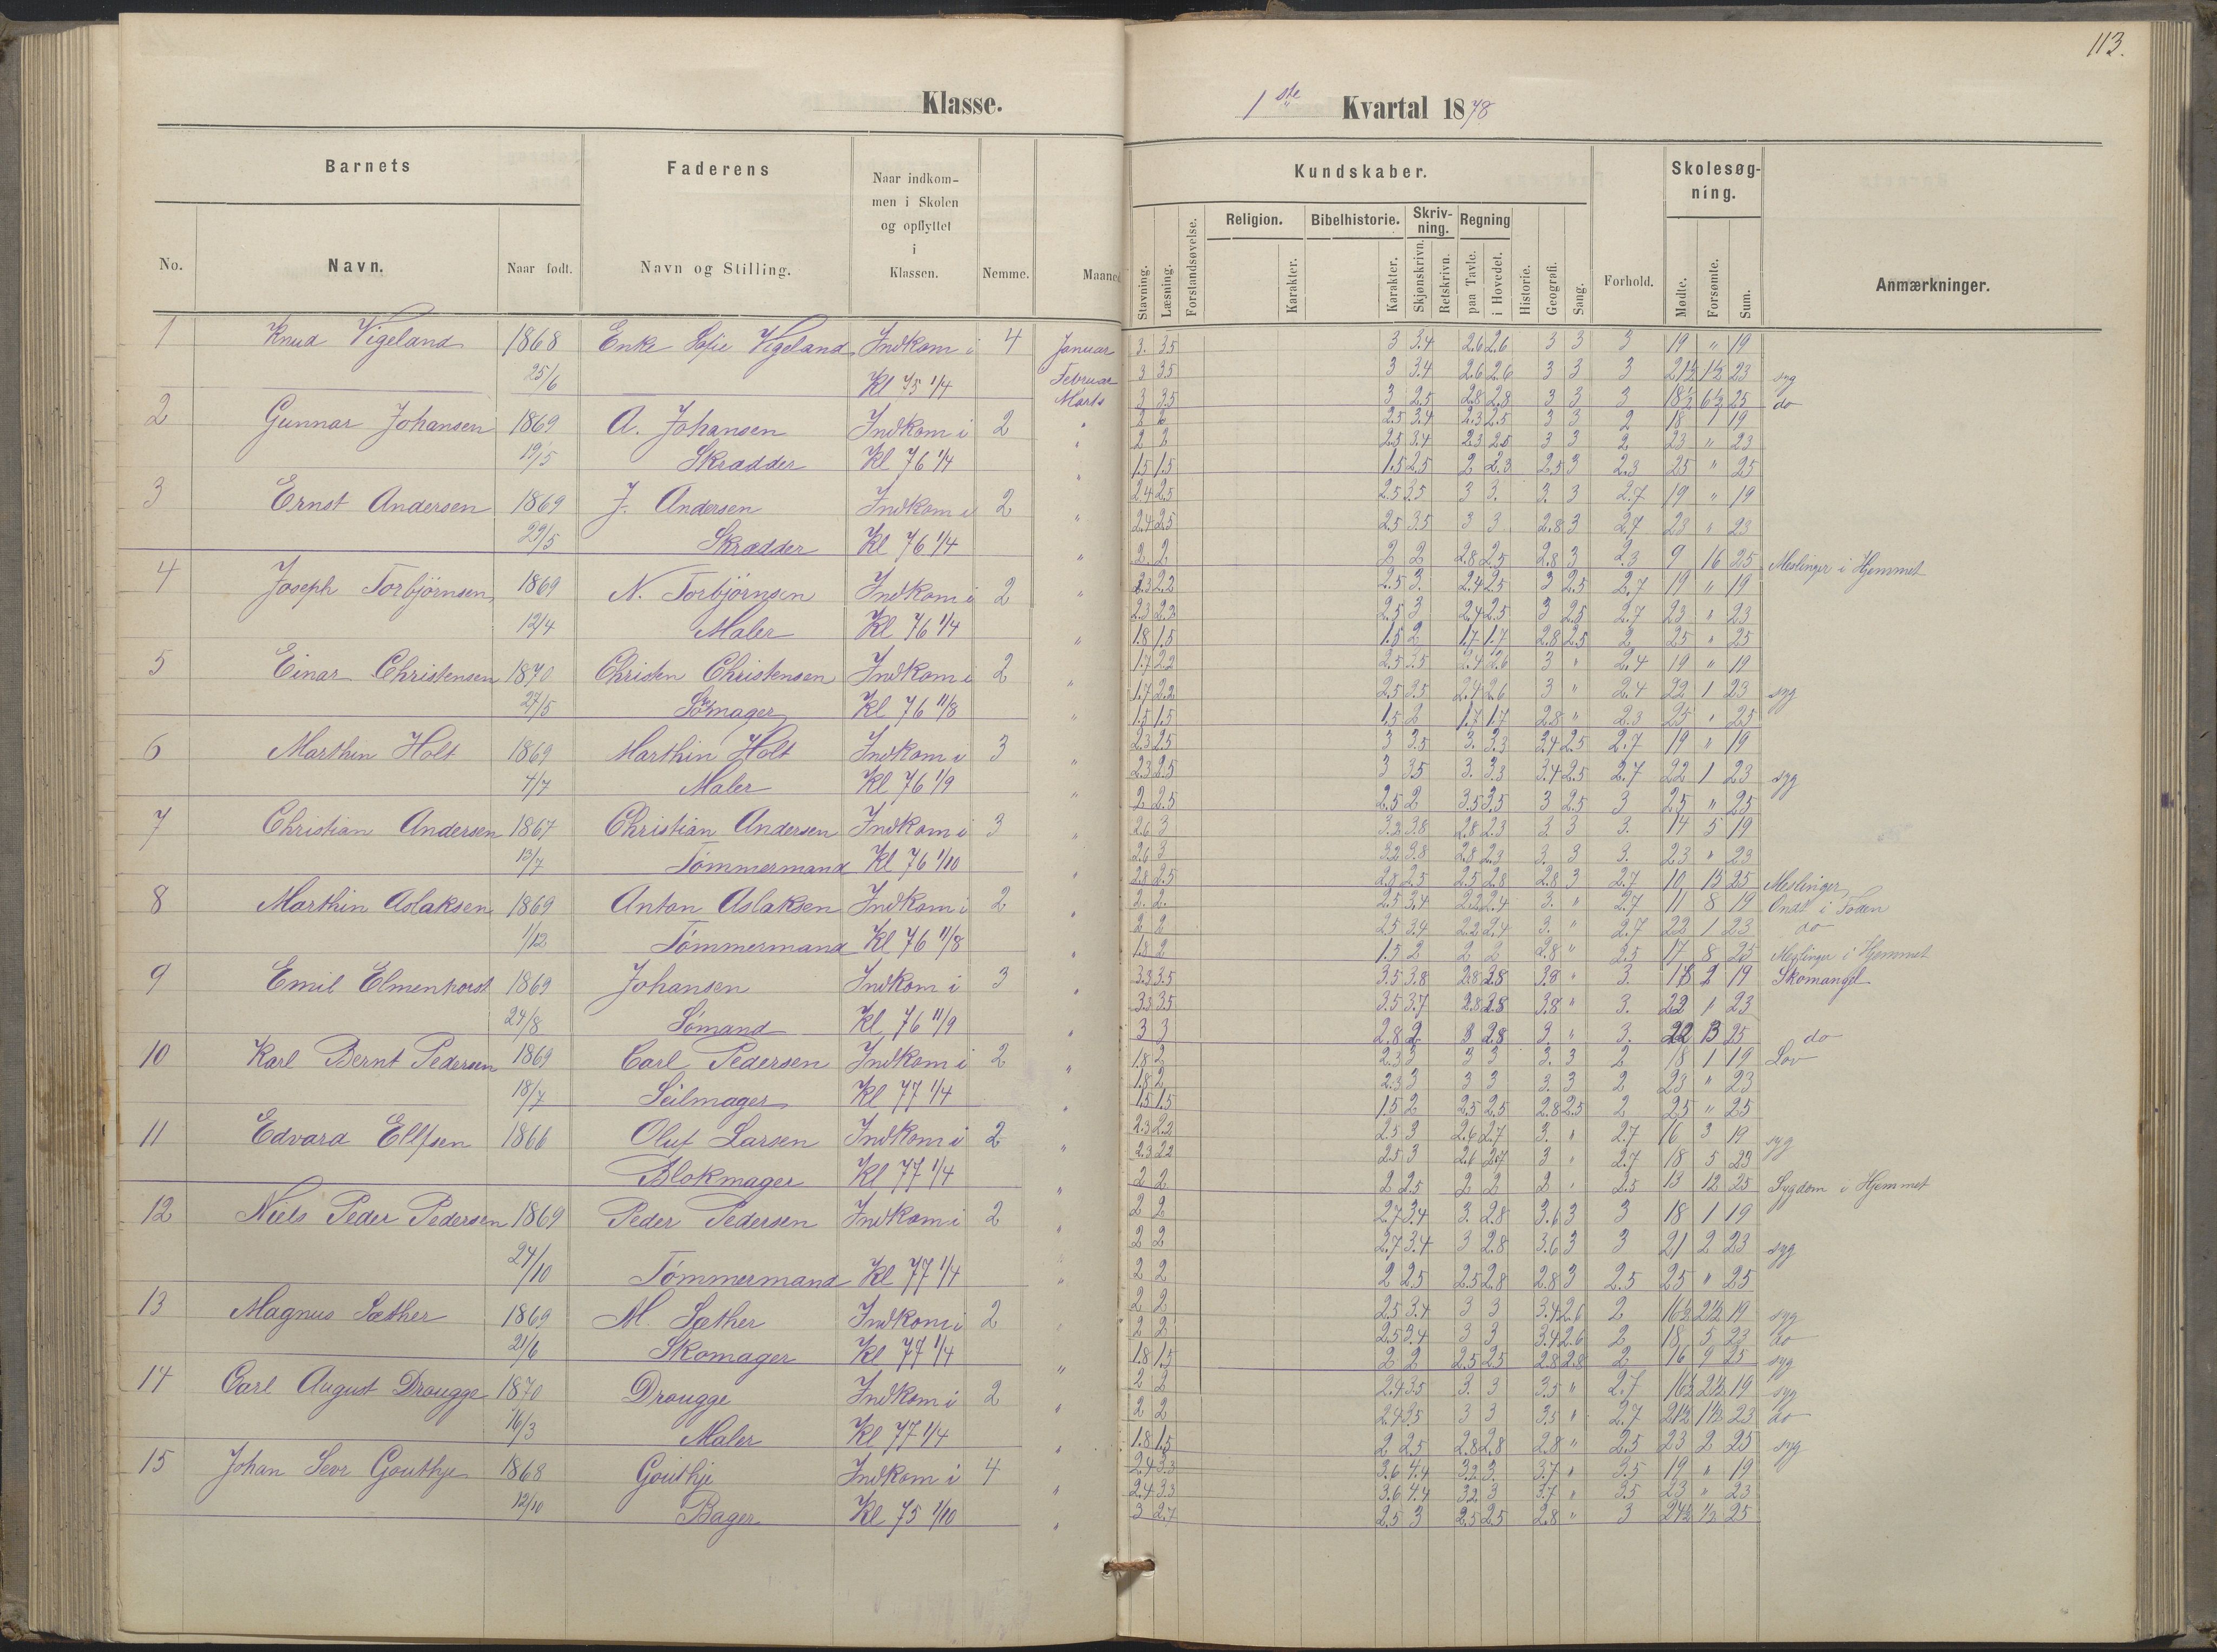 113.
Klasse.
1 ste Kvartal 1878
Barnets
Faderens
Naar indkom-
men i Skolen
og opflyttet
i
Klassen.
Kundskaber.
Skolesøg-
ning.
Religion. Bibelhistorie. Skriv-
ning. Regning
No. Navn. Naar født. Navn og Stilling. Nemme. Maaned
Stavning. Læsning. Forstandsøvelse. Karakter. Karakter. Skjønskrivn. Retskrivn. paa Tavle. i Hovedet. Historie. Geografi. Sang. Forhold. Mødte. Forsømte. Sum. Anmærkninger.
1 Knud Vigeland 1868 Enke Sofie Vigeland Indkom i 4 Januar 3. 3.5 3 3.4 2.6 2.6 3 3 3 19 " 19
25/6 Kl 75 1/4 Februar 3 3.5 3 3.4 2.6 2.6 3 3 3 21½ 1½ 23 syg
Marts 3 3.5 3 2.5 2.8 2.8 3 3 3 18½ 6½ 25 do
2 Gunnar Johansen 1869 A. Johansen Indkom i 2 " 2 2 2.5 3.4 2.3 2.5 3 3 2 18 1 19
19/5 Skrædder Kl 76 1/4 " 2 2 2.5 3.4 2.3 2.5 3 3 2 23 " 23
" 1.5 1.5 1.5 2.5 2 2.3 2.5 3 2.3 25 " 25
3 Ernst Andersen 1869 J. Andersen Indkom i 2 " 2.4 2.5 2.5 3.5 3 3. 3. 3 2.7 19 " 19
29/5 Skrædder Kl 76 1/4 2.4 2.5 2.5 3.5 3 3 2.8 3 2.7 23 " 23
" 2 2 2 2 2.8 2.5 2.8 3 2.3 9 16 25 Meslinger i Hjemmet
4 Joseph Torbjörnsen 1869 N. Torbjörnsen Indkom i 2 " 2.3 2.2 2.5 3. 2.4 2.5 3 2.5 2.7 19 " 19
12/4 Maler Kl 76 1/4 2.3 2.2 2.5 3 2.4 2.5 3 2.5 2.7 23 " 23
" 1.8 1.5 1.5 2 1.7 1.7 2.8 2.5 2 25 " 25
5 Einar Christensen 1870 Christen Christensen Indkom i 2 1.7 2.2 2.5 3.5 2.4 2.6 3 " 2.4 19 " 19
27/5 Kl 76 11/8 " 1.7 2.2 2.5 3.5 2.4 2.6 3 " 2.4 22 1 23 syg
" 1.5 1.5 1.5 2 1.7 1.7 2.8 " 2.3 25 " 25
6 Marthin Holt 1869 Marthin Holt Indkom i 3 " 2.3 2.5 3 3.5 3. 3.3 3.4 2.5 2.7 19 " 19
4/7 Maler Kl 76 1/9 2.3 2.5 3 3.5 3. 3.3 3.4 2.5 2.7 22 1 23 syg
" 2 2.5 2.5 2 3.5 3.5 3 2.5 3 25 " 25
7 Christian Andersen 1867 Christian Andersen Indkom i 3 " 2.6 3 3.2 3.8 2.8 2.3 3 3 3. 14 5 19
13/7 Tömmermand Kl 76 1/10 2.6 3 3.2 3.8 2.8 2.3 3. 3 3. 23 " 23
" 2.8 2.5 2.8 2.5 2.5 2.8 2.8 3 2.7 10 15 25 Meslinger
8 Marthin Aslaksen 1869 Anton Aslaksen Indkom i 2 " 2. 2. 2.5 3.4 2.2 2.4 3. " 2.7 11 8 19 Ondt i Foden
1/12 Tömmermand Kl 76 11/8 2 2 2.5 3.4 2.2 2.4 3. " 2.7 22 1 23 do
" 1.8 2 1.5 2 2 2 2.8 " 2.5 17 8 25 Meslinger i Hjemmet
9 Emil Elmenhorst 1869 Johansen Indkom i 3 " 3.3 3.5 3.5 3.8 2.8 3.8 3.8 " 3. 19 Skomangel
24/8 Sömand Kl 76 11/9 3.3 3.5 3.5 3.7 2.8 2.8 3.8 " 3. 22 1 23
" 3 3 2.8 2 3 2.8 3 " 3. 25 do
10 Karl Bernt Pedersen 1869 Carl Pedersen Indkom i 2 " 1.8 2 2.3 3 3 3 3. 3 2 18 1 19 Lov
18/7 Seilmager Kl 77 1/4 1.8 2 2.3 3 3 3 3. 3 2 23 " 23
" 1.5 1.5 1.5 2 2.5 2.5 2.8 2.5 2 25 " 25
11 Edvard Ellfsen 1866 Oluf Larsen Indkom i 2 " 2.3 2.2 2.5 3 2.6 2.7 3. " 2.7 16 3 19 syg
Blokmager Kl 77 1/4 2.3 2.2 2.5 3 2.6 2.7 3 " 2.7 18 5 23
" 2 2 2 2.5 2 2 2 " 2.5 13 12 25 Sygdom i Hjemmet
12 Niels Peder Pedersen 1869 Peder Pedersen Indkom i 2 " 2 2 2.7 3.4 3. 2.8 3.6 3 3 18 1 19
24/10 Tömmermand Kl 77 1/4 2 2 2.7 3.4 3 2.8 3.6 3 3 21 2 23 syg
" 2 2 2 2.5 2.5 2.8 2.8 3 2.5 25 " 25
13 Magnus Sæther 1869 M. Sæther Indkom i 2 2 2 2.5 3.4 3 3 3.4 2.6 2 16½ 2½ 19 syg
21/6 Skomager Kl 77 1/4 2 2 2.5 3.4 3 3 3.4 2.6 2 18 5 23 do
" 1.8 1.5 2 2 2.5 2.5 2.8 2.8 2 16 9 25 syg
14 Carl August Drougge 1870 Drougge Indkom i 2 " 2 2 2.4 3.5 3. 3 3.5 " 2.7 16½ 2½ 19 syg
16/3 Maler Kl 77 1/4 2 2 2.4 3.5 3 3 3.5 " 2.7 21½ 1½ 23 do
" 1.8 1.5 2 2.5 2.8 2.8 2.8 " 2.5 23 2 25 syg
15 Johan Gouthje 1868 Gouthje Indkom i 4 " 2.4 3.3 3.6 4.4 3.2 3 3.7 " 3.5 19 " 19
12/10 Bager Kl 75 1/10 2.4 3.3 3.6 4.4 3.2 3 3.7 " 3.5 23 " 23
" 3 2.7 2.5 3 2.5 2.5 2.8 " 3 24½ ½ 25